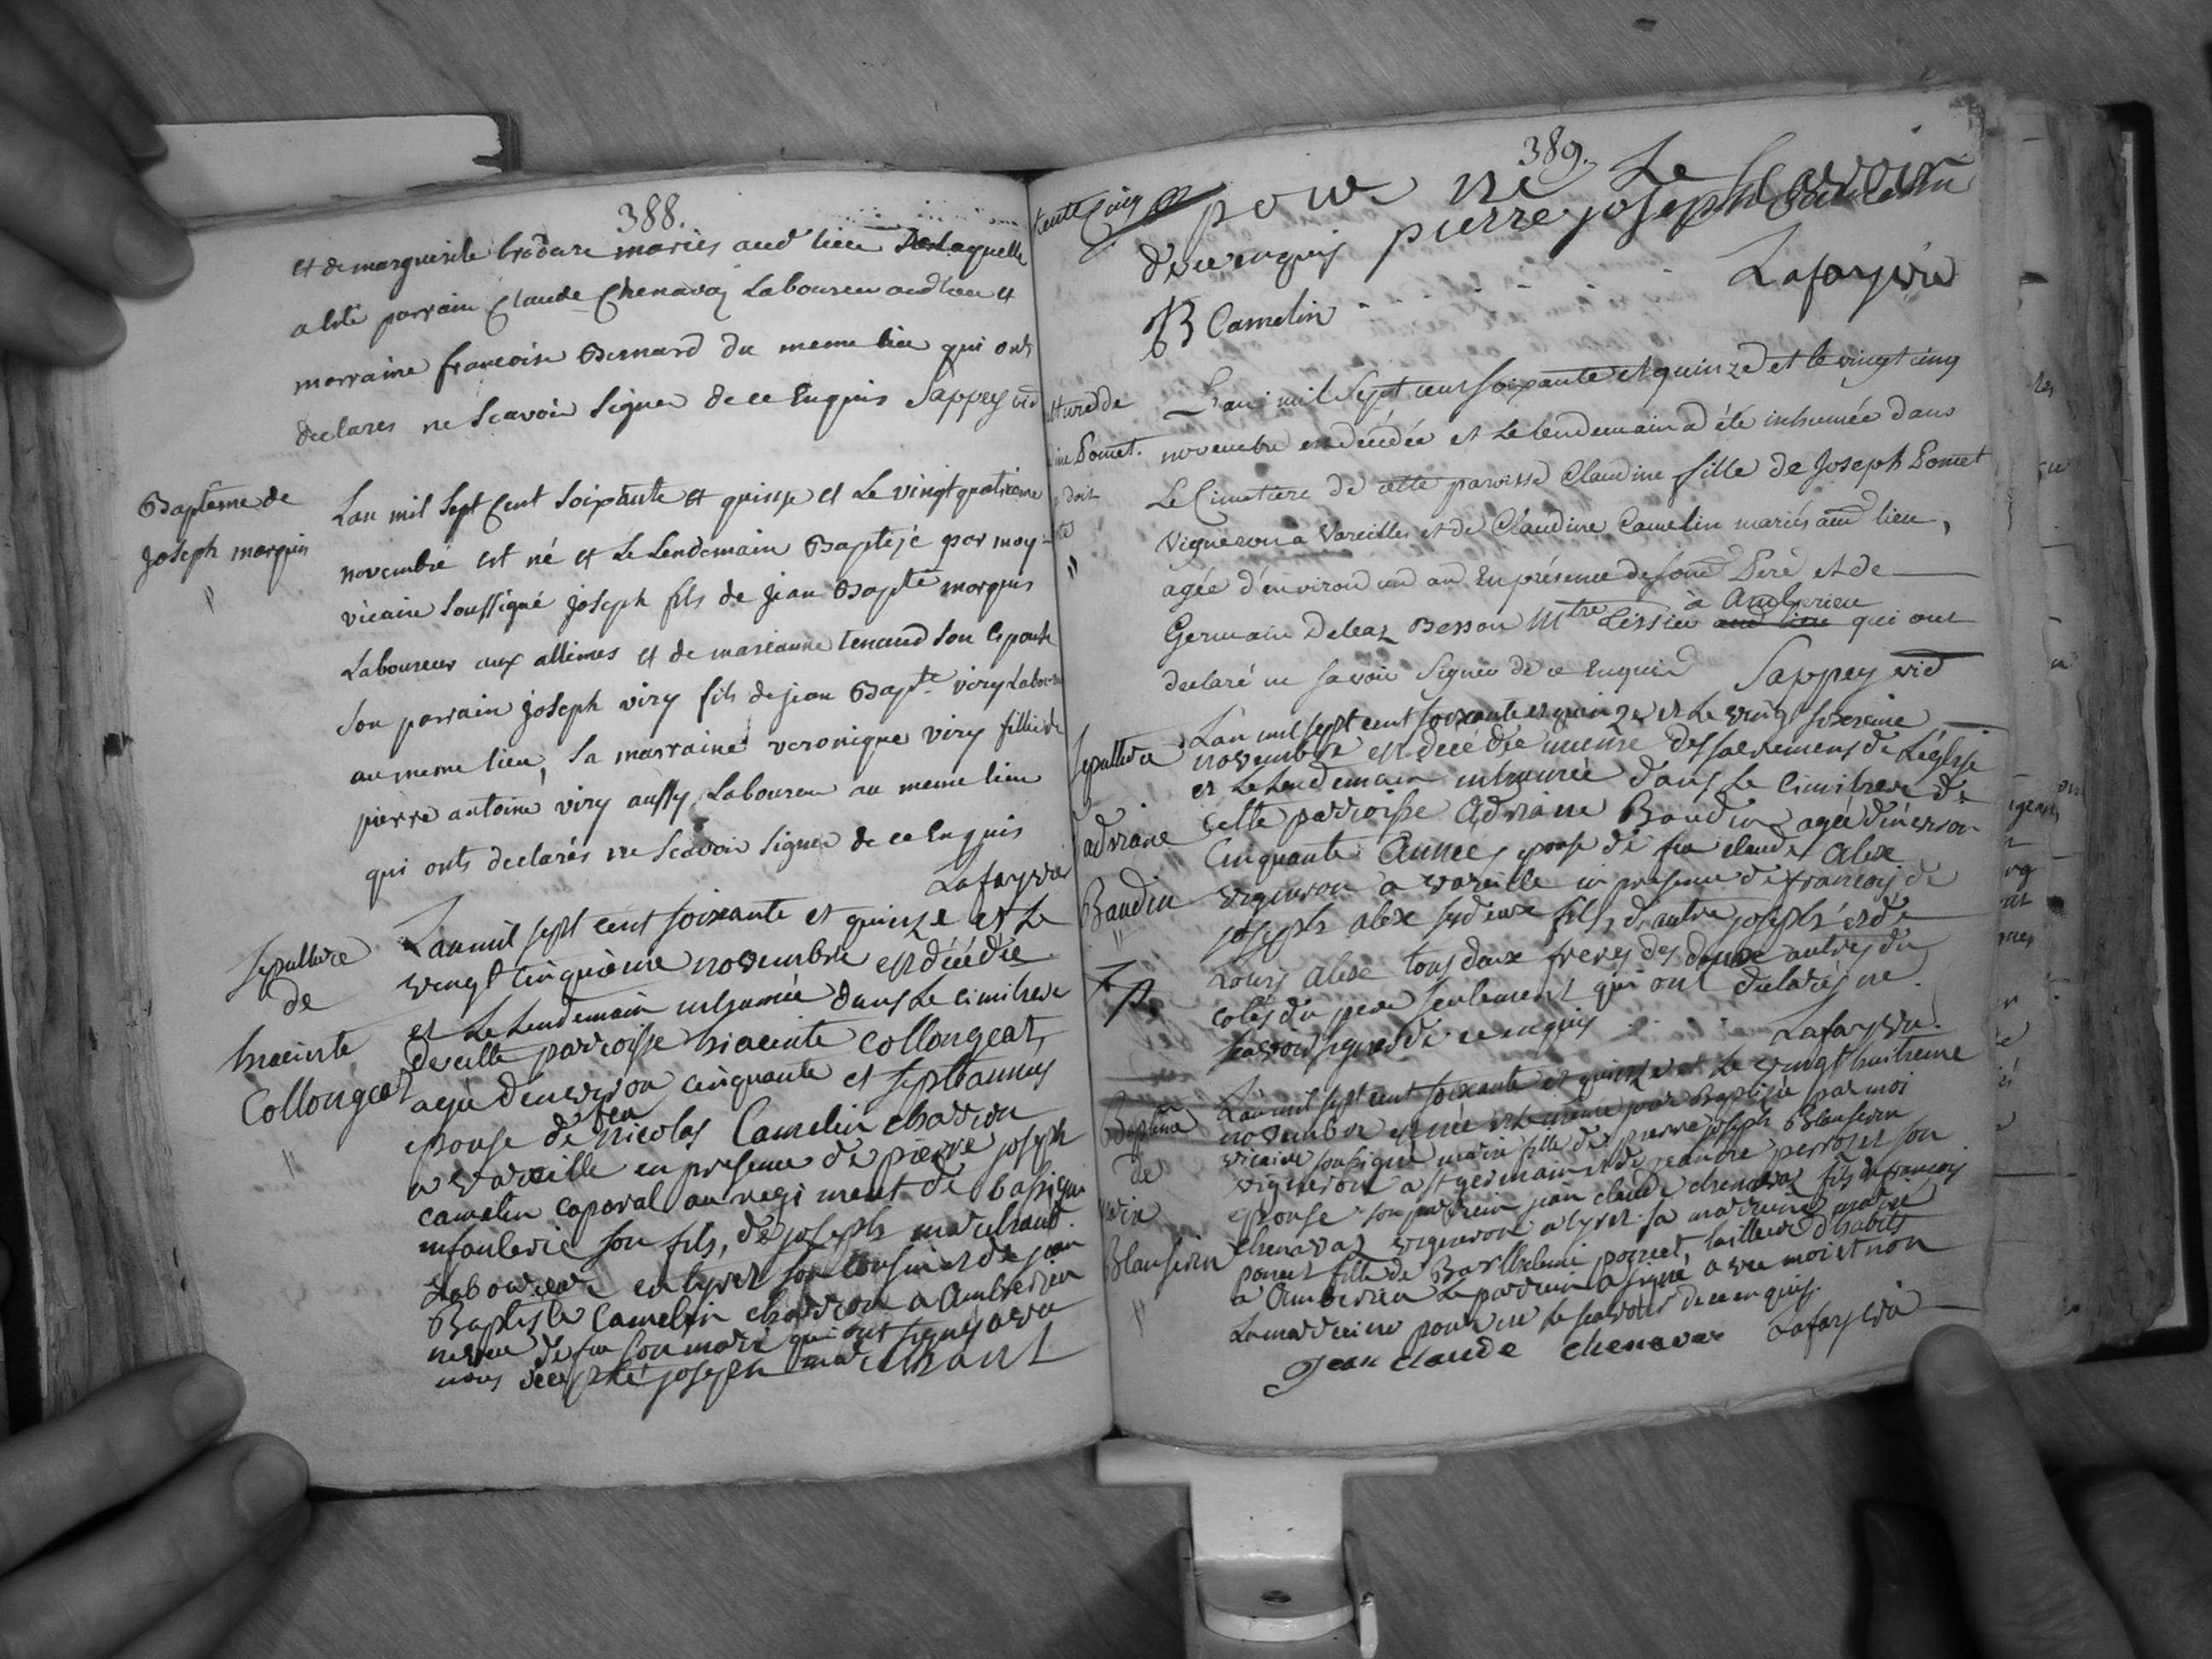 388.
et de marguerite brodure mariés aud lieu de laquelle
a été parrain Claude Chenavaz Laboureur aud lieu et
marraine francoise Bernard du meme lieu qui ont
declarés ne scavoir signer de ce Enquis Sappey vic
Baptême de
joseph marguin
Lan mil sept Cent soixante et quinze et Le vingt quatrieme
novembre est né et Le Lendemain Baptisé par moy
vicaire soussigné joseph fils de jean Bapte marguin
Laboureur aux allimes et de marianne tenand son epouse
son parrain joseph viry fils de jean Bapte viry Labour
au meme lieu, sa marraine veronique viry fille de
pierre antoine viry aussy Laboureur au meme lieu
qui onts declarés ne scavoir signer de ce Enquis
Lafay vic
sepulture
de
hiacinte
Collongeat
Lan mil sept cent soixante et quinze et Le
vingt cinquieme novembre est décédée
et Le Lendemain inhumée dans Le cimitiere
de cette parroisse hiacinte Collongeat,
agée d'environ cinquante et sept années
epouse de feu nicolas Camelin charron
a vareille en presence de pierre joseph
camelin caporal au regiment de bassigni
infanterie son fils, de joseph marchand
Laboureur en Lyret son cousin et de jean
Baptiste Camelin charron a Amberieu
neveu de feu son mari qui ont signés avec
nous joseph marchant
389.
pour ne Le scavoir
de ce enquis pierre joseph Camelin
B Camelin Lafay vic
L'an mil sept cent soixante et quinze et le vingt cinq
novembre est décédée et le lendemain a été inhumée dans
Le Cimetiere de cette paroisse Claudine fille de Joseph Pomet
Vigneron a Vareilles et de Claudine Camelin mariés aud lieu,
agée d'environ un an En présence de son d Pere et de
à Amberieu
Germain Deleaz Besson Mtre Tissier aud lieu qui ont
declaré ne savoir signer de ce Enquis Sappey vic
sepulture
d'adriane
Baudin
Lan mil sept cent soixante et quinze et Le vingt sixieme
novembre est décédée munie des sacremens de L'église
et Le Lendemain inhumée dans Le cimitiere de
cette parroisse Adriane Baudin agée d'environ
cinquante années epouse de feu claude alex
vigneron a vareille en presence de francois de
joseph alex fils d'autre joseph et de
Louis alex tous deux freres des autres du
cotés du pere seulement qui ont declarés ne
scavoir signer de ce enquis Lafay vic
Baptême
de
Blanferin
Lan mil sept cent soixante et quinze et Le vingt huitieme
novembre est née et le meme jour Baptisée par moi
vicaire soussigné marie fille de pierre joseph Blanferin
vigneron a st germain et de jeanne perroset son
epouse son parrein jean claude chenavaz fils de francois
chenavaz vigneron a Lyret sa marreine marie
poncet fille de Barthelemi poncet, tailleur d'habits
a Amberieu Le parrein a signé avec moi et non
La marreine pour ne Le scavoir de ce enquis.
Jean claude chenavaz Lafay vic